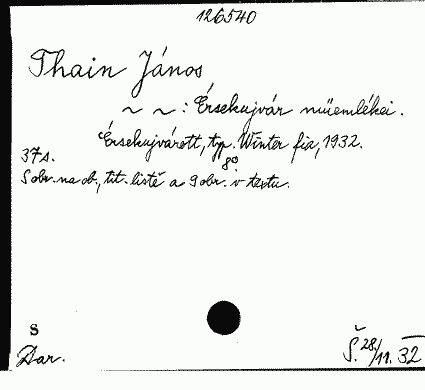 126540
Thain János,
~ ~ : Érsekujvár müemlékei.
Érsekujvárott, typ. Winter fia, 1932.
37 s. 8°
S obr. na ob., tit. listě a 9 obr. v textu.
S
Dar.
Š. 28/11. 32